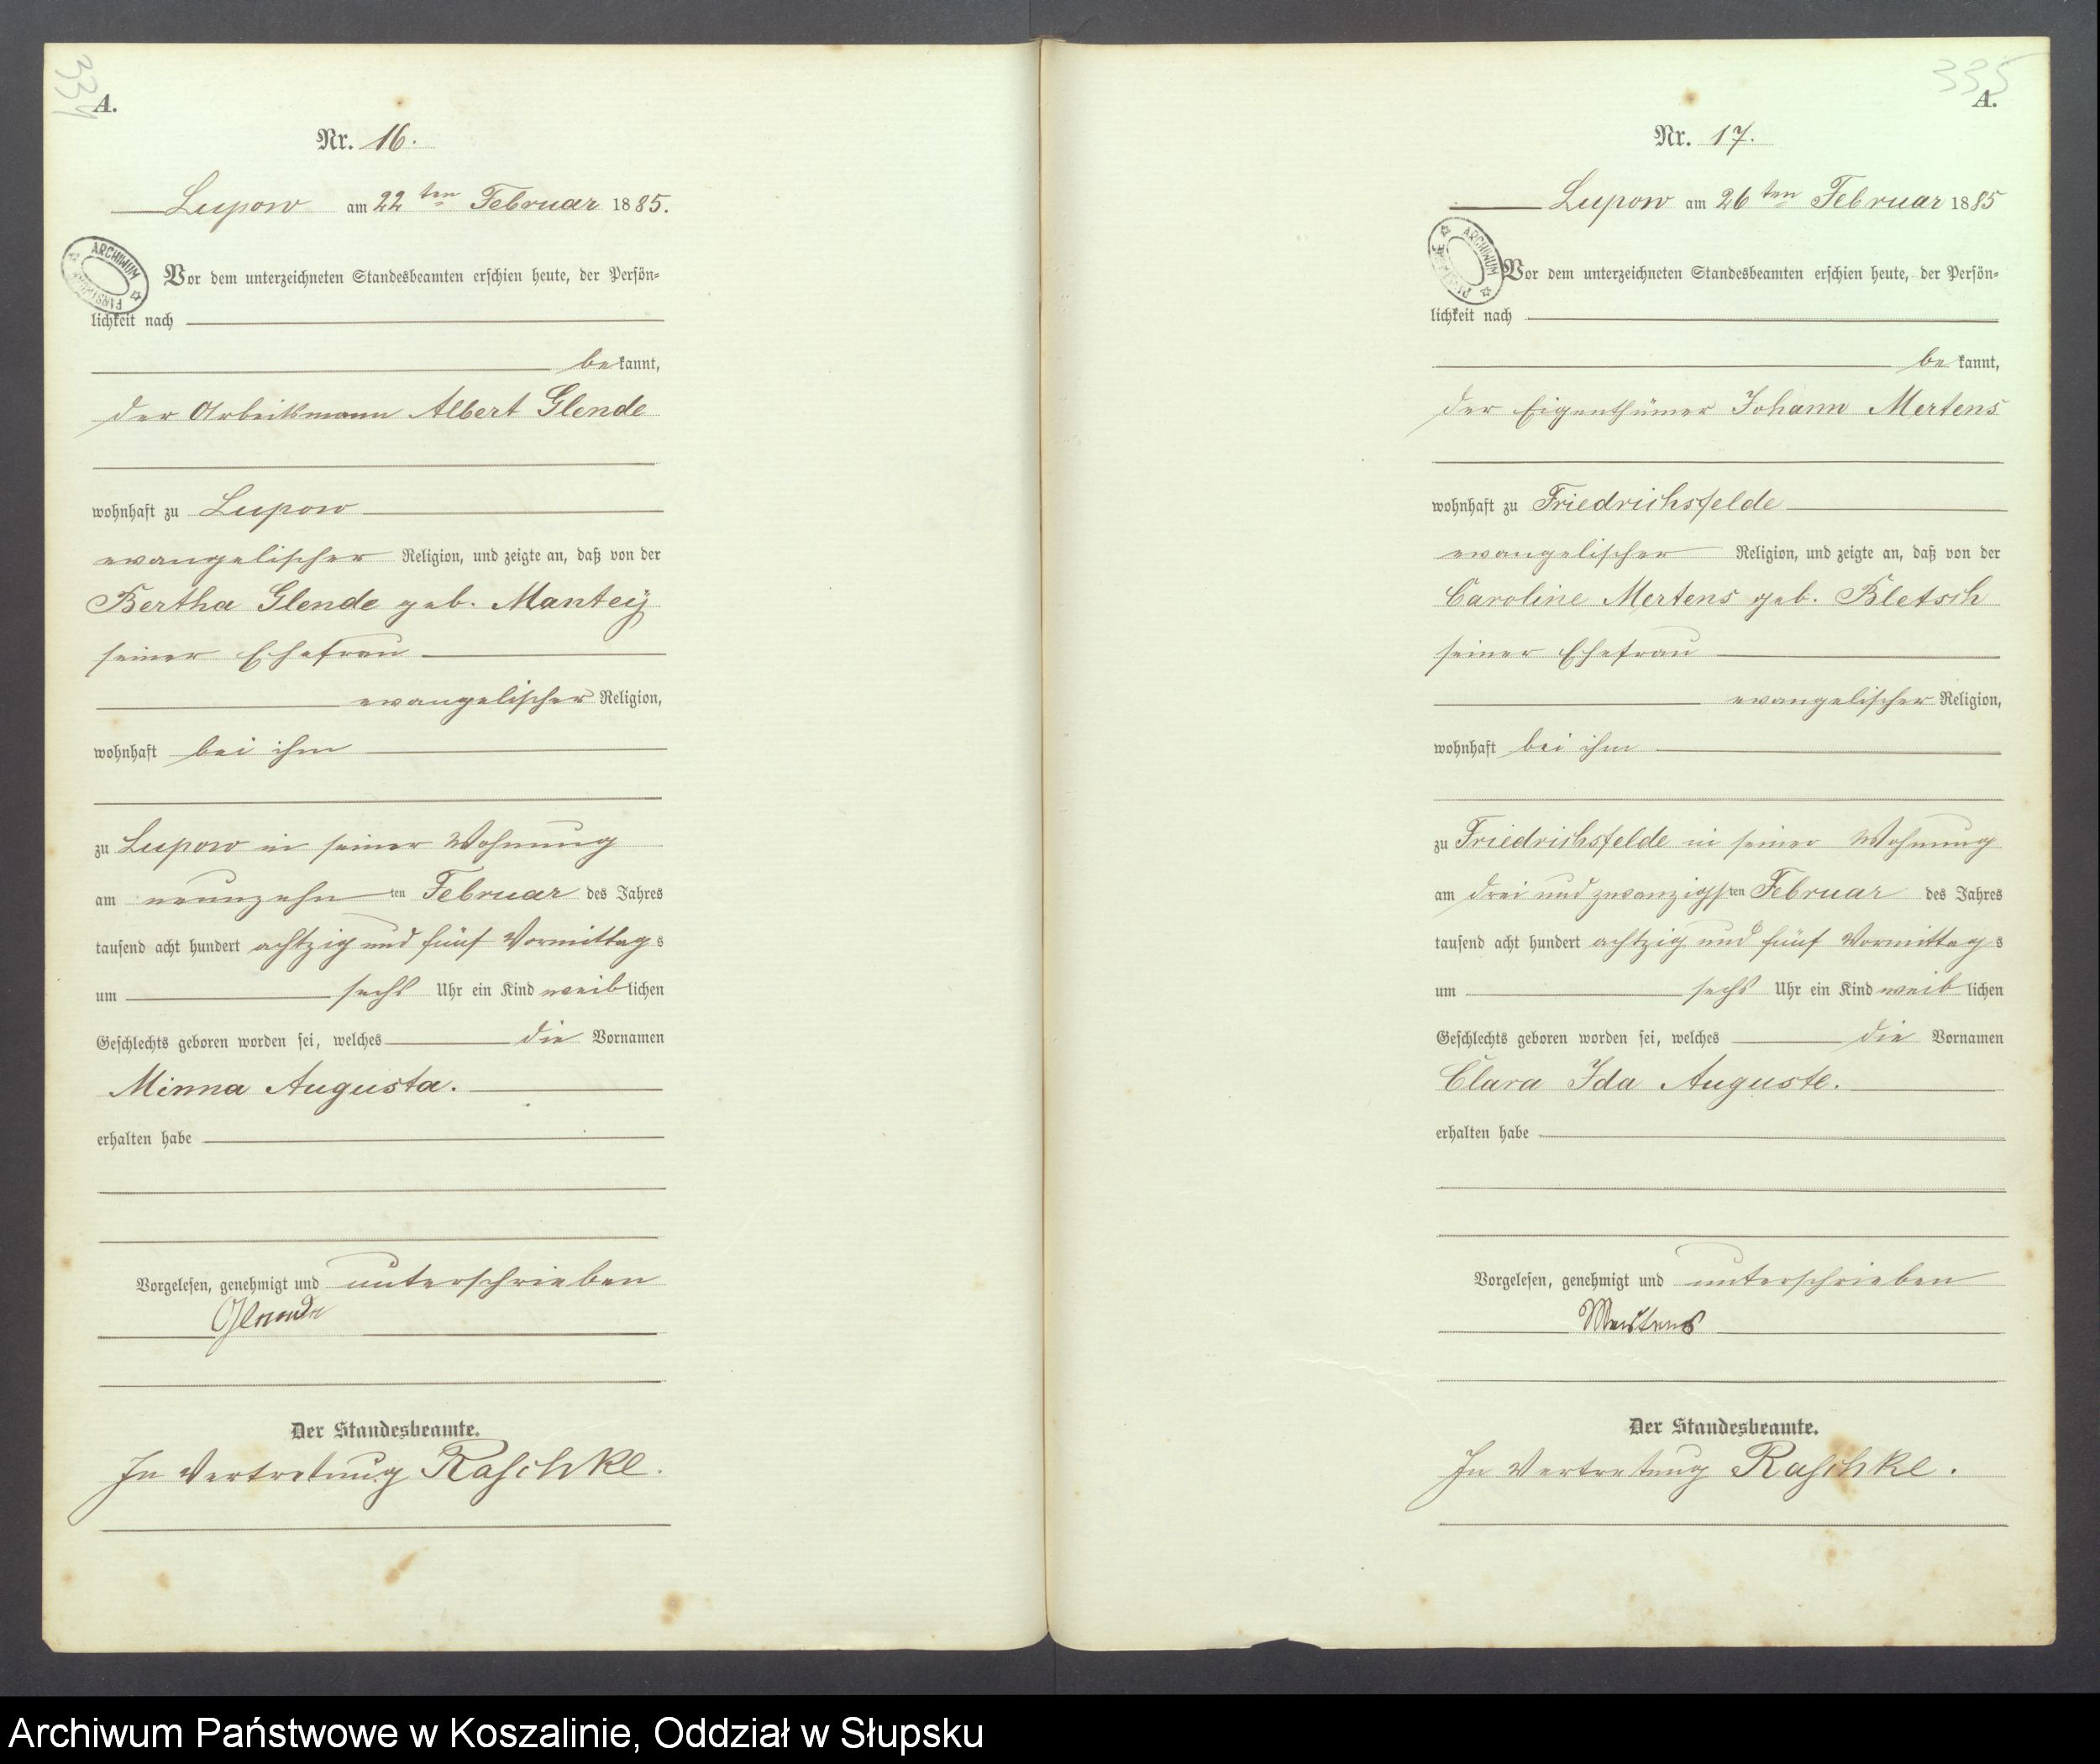 334
A.
Nr. 16.
Lupow am 22ten Februar 1885.
ARCHIWUM
Vor dem unterzeichneten Standesbeamten erschien heute, der Persön=
lichkeit nach
bekannt,
der Arbeitsmann Albert Glende
wohnhaft zu Lupow
evangelischer Religion, und zeigte an, daß von der
Bertha Glende geb. Manteÿ
seiner Ehefrau
evangelischer Religion,
wohnhaft bei ihm
zu Lupow in seiner Wohnung
am neunzehnten Februar des Jahres
tausend acht hundert achtzig und fünf Vormittags
um sechs Uhr ein Kind weiblichen
Geschlechts geboren worden sei, welches die Vornamen
Minna Augusta.
erhalten habe
Vorgelesen, genehmigt und unterschrieben
Glende
Der Standesbeamte.
In Vertretung Raschke.
335
A.
Nr. 17.
Lupow am 26ten Februar 1885
ARCHIWUM
Vor dem unterzeichneten Standesbeamten erschien heute, der Persön=
lichkeit nach
bekannt,
der Eigenthümer Johann Mertens
wohnhaft zu Friedrichsfelde
evangelischer Religion, und zeigte an, daß von der
Caroline Mertens geb. Bletsch
seiner Ehefrau
evangelischer Religion,
wohnhaft bei ihm
zu Friedrichsfelde in seiner Wohnung
am drei und zwanzigsten Februar des Jahres
tausend acht hundert achtzig und fünf Vormittags
um sechs Uhr ein Kind weiblichen
Geschlechts geboren worden sei, welches die Vornamen
Clara Ida Auguste.
erhalten habe
Vorgelesen, genehmigt und unterschrieben
Mertens
Der Standesbeamte.
In Vertretung Raschke.
Archiwum Państwowe w Koszalinie, Oddział w Słupsku